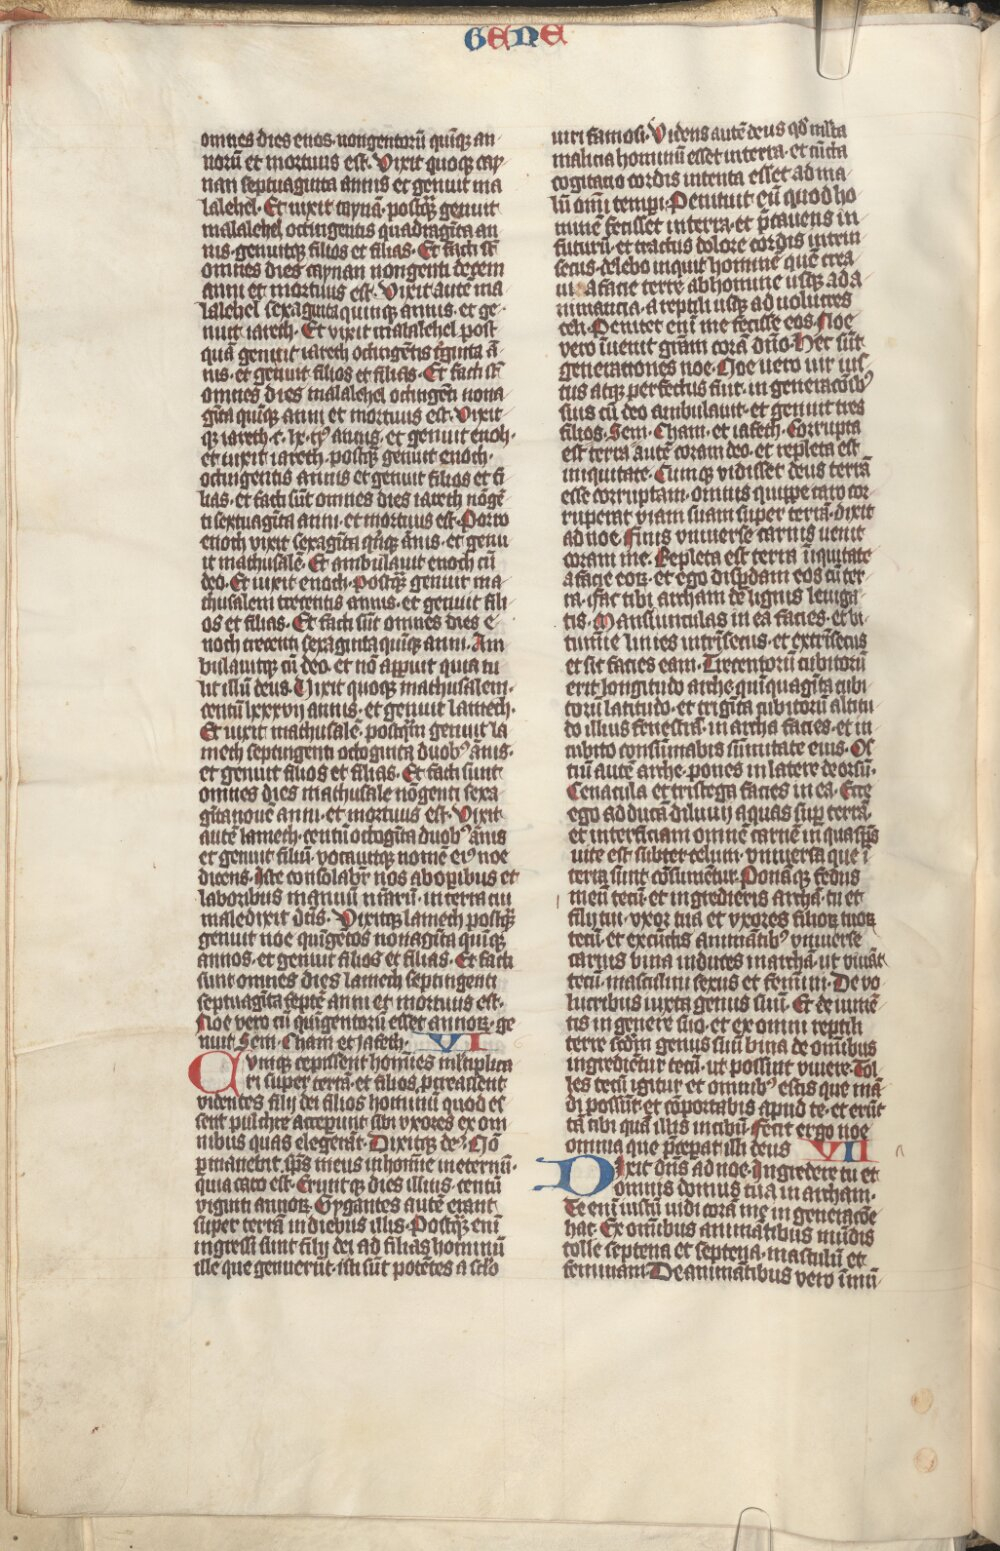 GENE
omnes dies enos· nongentorū quīqꝫ an
norū et mortuus est· Vixit quoqꝫ cay
nan septuaginta annis et genuit ma
lalehel· Et uixit caynā· postqꝫ genuit
malalehel octingentis quadragīta an
nis· genuitqꝫ filios et filias· Et facti sūt
omnes dies caynan nongenti decem
anni et mortuus est· Vixit autē ma
lalehel sexaginta quinqꝫ annis· et ge
nuit iareth· Et vixit malalehel post
quā genuit iareth octingētis t'ginta ā
nis· et genuit filios et filias· Et facti sūt
omnes dies malalehel octingēti nona
gīta quīqꝫ anni et mortuus est· Vixit
qꝫ iareth· c· lx· ij annis· et genuit enoh·
et uixit iareth· postqꝫ genuit enoch·
octingentis annis et genuit filios et fi
lias· et facti sūt omnes dies iareth nōgē
ti sextuagīta anni· et mortuus est· Porro
enoch vixit sexagīta quīqꝫ ānis· et genu
it mathusalē· Et ambulauit enoch cū
deo· Et uixit enoch· postqꝫ genuit ma
thusalem trecentis annis· et genuit fili
os et filias· Et facti sūt omnes dies e
noch trecenti sexaginta quīqꝫ anni· Am
bulauitqꝫ cū deo· et nō apparuit quia tu
lit illū deus· Vixit quoqꝫ mathusalem·
centū lxxxvij annis· et genuit lamech·
Et uixit mathusalē· postqꝫ genuit la
mech septingenti octoginta duob⁹ ānis·
et genuit filios et filias· Et facti sunt
omnes dies mathusale nōgenti sexa
gīta nouē anni· et mortuus est· Vixit
autē lamech· centū octogīta duob⁹ ānis
et genuit filiū· vocauitqꝫ nomē ei⁹ noe
dicens· Iste consolabr nos ab operibus et
laboribus manuū nr̄arū· in terra cui
maledixit dn̄s· Vixitqꝫ lamech postqꝫ
genuit noe quīgētos nonagīta quīqꝫ
annos· et genuit filios et filias· Et facti
sunt omnes dies lamech septingenti
septuagīta septē anni et mortuus est·
Noe vero cū quīgentorū esset annoꝝ· ge
nuit· Sem· Cham et Jafeth· VI
Cumqꝫ cepissent homīes m̄ltiplica
ri super terrā· et filios procreassent
videntes filij dei filias hominū quod es
sent pulchre acceperunt sibi vxores ex om
nibus quas elegerāt· Dixitqꝫ de⁹· Nō
permanebit sp̄s meus in homīe in eternū·
quia caro est· Eruntqꝫ dies illius· centū
viginti annoꝝ· Gygantes autē erant
super terrā in diebus illis· Postqꝫ eni
ingressi sunt filij dei ad filias hominū
ille que genuerūt· isti sūt potētes a sclo
uiri famosi· Videns autē deus qd m̄lta
malicia hominū esset in terra· et cūcta
cogitatio cordis intenta esset ad ma
lū omni tempore· Penituit eū quod ho
minē fecisset in terra· et p̄cauens in
futurū· et tractus dolore cordis intrin
secus· delebo inquit hominē quē crea
ui a facie terre ab homine usqꝫ ad a
nimancia· a reptili usqꝫ ad uolucres
celi· Penitet eni me fecisse eos· Noe
vero īuenit gr̄am corā dn̄o· Hec sūt
generationes noe· Noe uero uir ius
tus atqꝫ perfectus fuit· in generacōib⁹
suis cū deo ambulauit· et genuit tres
filios· Sem· Cham· et iafeth· Corrupta
est terra autē coram deo· et repleta est
iniquitate· Cumqꝫ vidisset deus terrā
esse corruptam· omnis quippe caro cor
ruperat viam suam super terrā· dixit
ad noe· Finis vniuerse carnis uenit
coram me· Repleta est terra īiquitate
a facie eoꝝ· et ego disperdam eos cū ter
ra· ffac tibi archam de lignis leuiga
tis· Mansiunculas in ea facies· et bi
tumīe linies intrīsecus· et extrīsecus
et sic facies eam· Trecentorū cubitorū
erit longitudo arche quīquagīta cubi
torū latitudo· et trigīta cubitorū altitu
do illius fenestrā· in archa facies· et in
cubito consūmabis sūmitate eius· Os
tiū autē arche· pones in latere deorsū·
Cenacula et tristega facies in ea· Ecce
ego adducā diluuij aquas super terrā·
et interficiam omnē carnē in qua sp̄s
uite est subter celum· vniuersa que ī
terra sunt cōsumētur· Ponāqꝫ fedus
meū tecū· et ingredieris archā· tu et
filij tui· vxor tua et vxores filioꝝ tuoꝝ
tecū· et ex cūctis animātib⁹ vniuerse
carnis bina induces in archā· ut viuāt
tecū· masculini sexus et feminini· De vo
lucribus iuxta genus suū· Et de iumē
tis in genere suo· et ex omni reptili
terre scdm genus suū bina de omībus
ingredientur tecū· ut possint viuere· Tol
les tecū igitur et omnib⁹ escis que mā
di possūt· et cōportabis apud te· et erūt
tā tibi quā illis in cibū· Fecit ergo noe
omnia que preceperat illi deus VII
Dixit dn̄s ad noe· Ingredere tu et
omnis domus tua in archam·
Te eni iustū uidi corā me in generacōe
hac· Ex omībus animātibus mūdis
tolle septena et septena· masculū et
feminam· De animātibus vero īmū